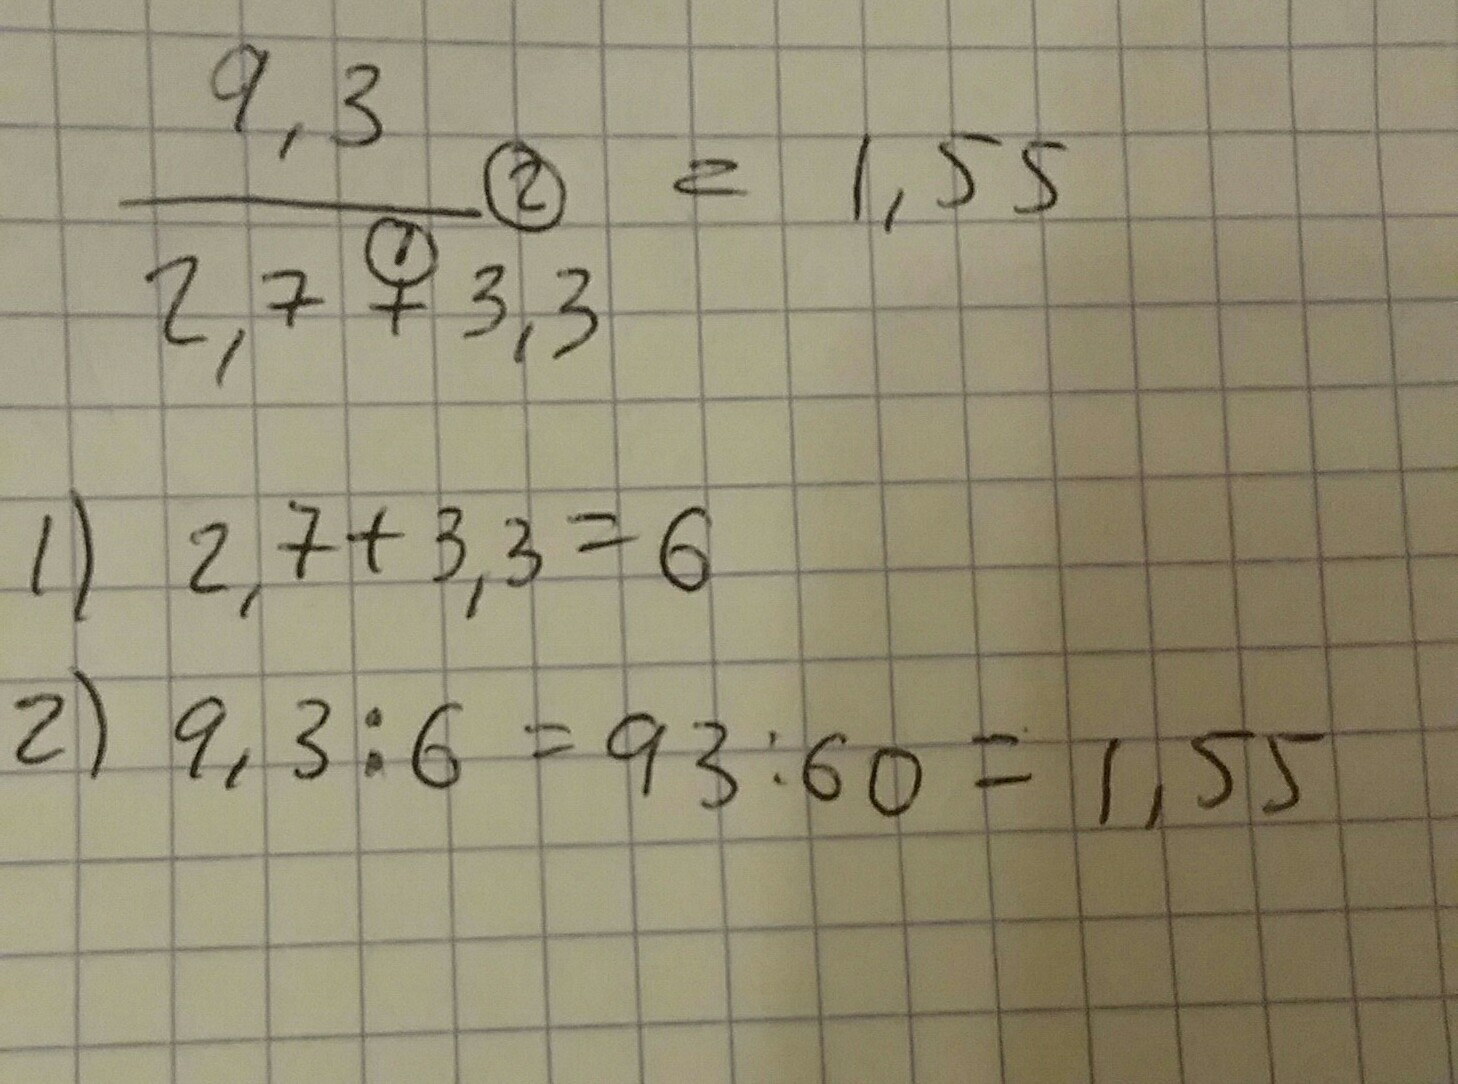 9,3
② = 1,55
①
2,7 + 3,3
1) 2,7+3,3=6
2) 9,3:6=93:60=1,55